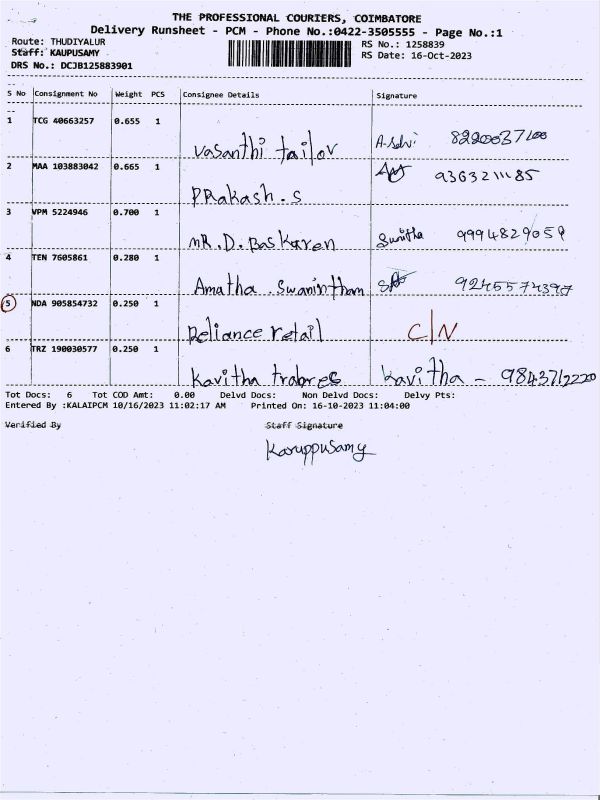 THE PROFESSIONAL COURIERS, COIMBATORE
Delivery Runsheet - PCM - Phone No.:0422-3505555 - Page No.:1
Route: THUDIYALUR
RS No.: 1258839
Staff: KAUPUSAMY
RS Date: 16-Oct-2023
DRS No.: DCJB125883901
S No Consignment No Weight PCS Consignee Details Signature
1 TCG 40663257 0.655 1
vasanthi tailor A.Selvi 8220037100
2 MAA 103883042 0.665 1
PRakash.S 9363211185
3 VPM 5224946 0.700 1
MR.D.Baskaren Sunitha 9994829059
4 TEN 7605861 0.280 1
Amatha .Swanintham 9245574397
5 NDA 905854732 0.250 1
Reliance retail C/N
6 TRZ 190030577 0.250 1
Kavitha trabres Kavitha - 9843712220
Tot Docs: 6 Tot COD Amt: 0.00 Delvd Docs: Non Delvd Docs: Delvy Pts:
Entered By :KALAIPCM 10/16/2023 11:02:17 AM Printed On: 16-10-2023 11:04:00
Verified By Staff Signature
Karuppusamy